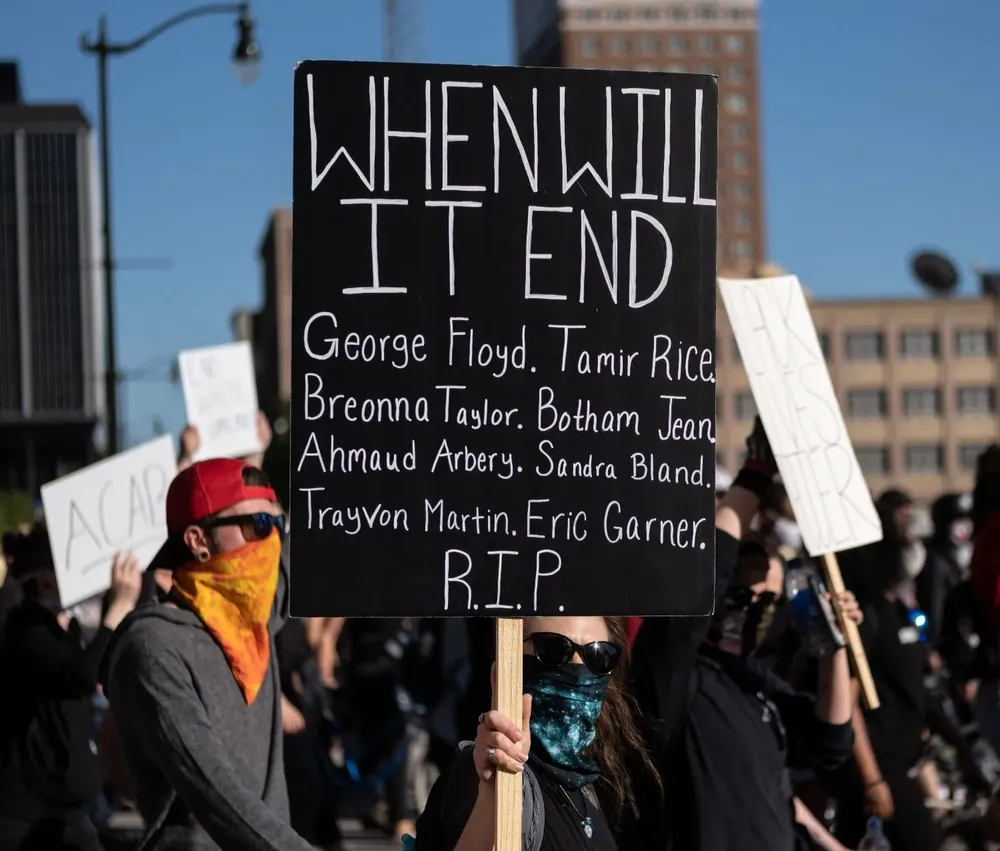 WHEN WILL
IT END
George Floyd. Tamir Rice.
Breonna Taylor. Botham Jean.
Ahmaud Arbery. Sandra Bland.
Trayvon Martin. Eric Garner.
R.I.P.
ACAB